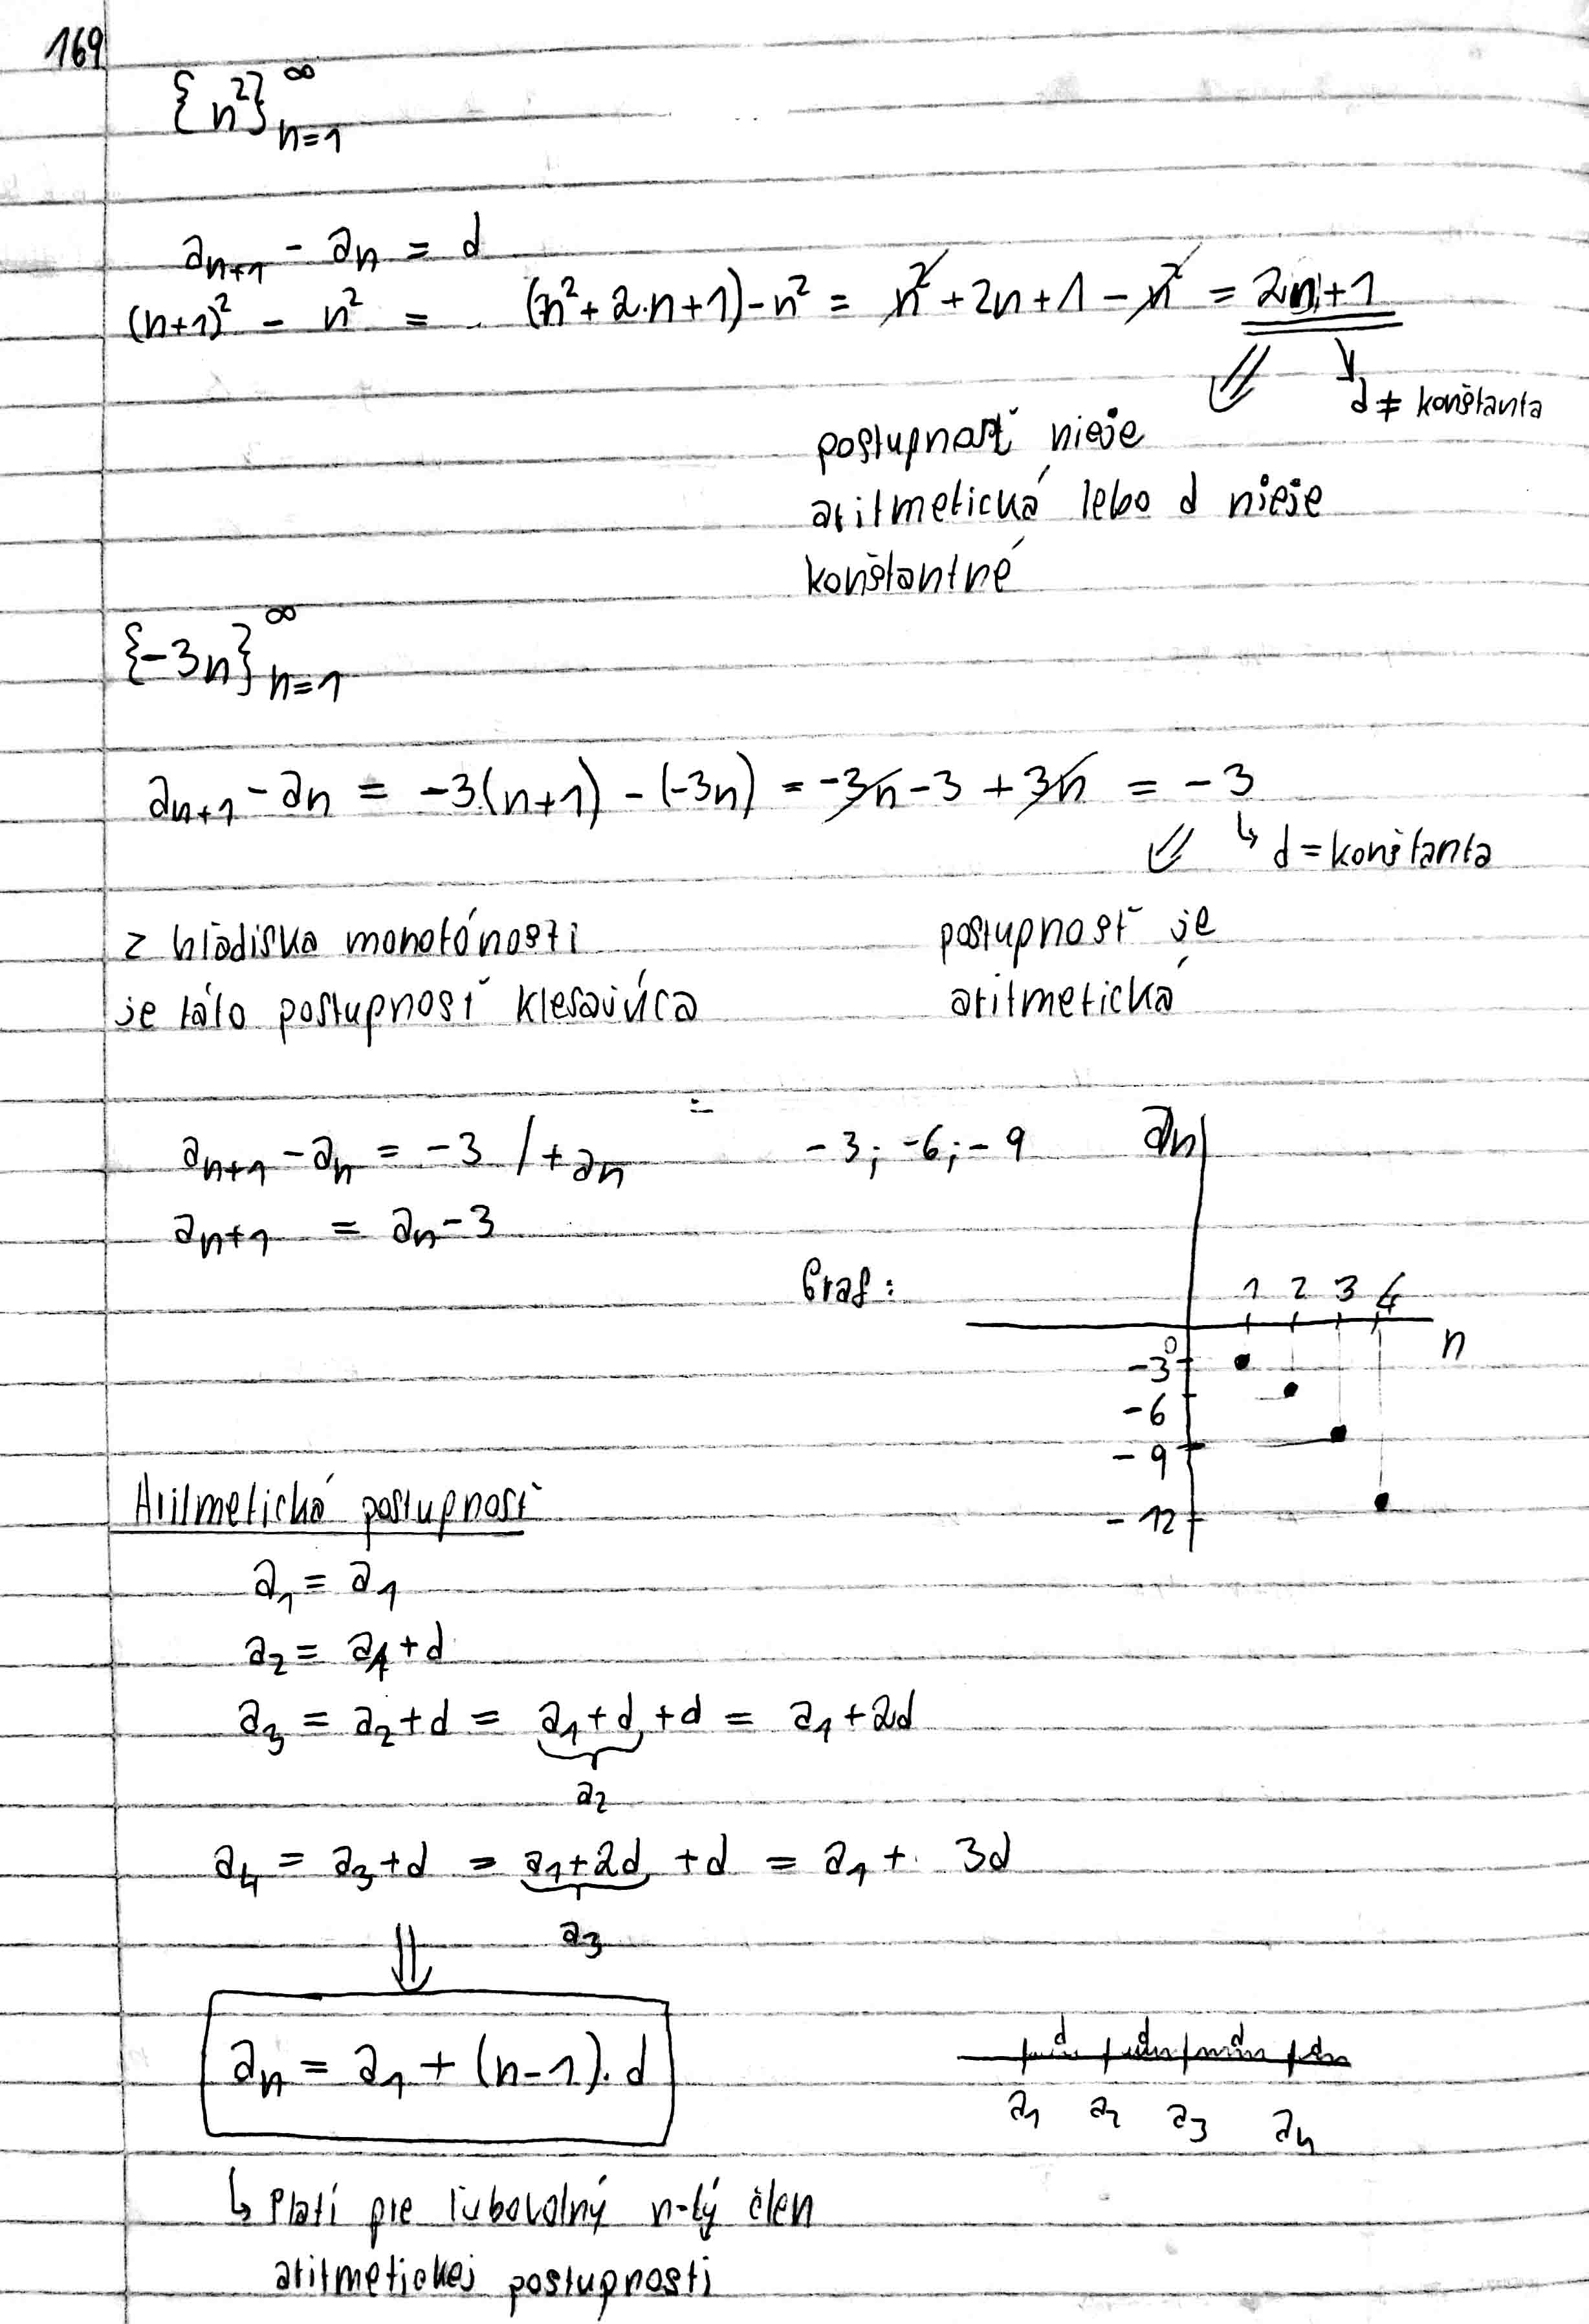 169
{n²}∞n=1
aₙ₊₁ - aₙ = d
(n+1)² - n² = (n²+2.n+1)-n² = n²+2n+1-n² = 2n+1
d ≠ konštanta
postupnosť nieje
aritmetická lebo d nieje
konštantné
{-3n}∞n=1
aₙ₊₁ - aₙ = -3.(n+1) - (-3n) = -3n-3+3n = -3
↳ d = konštanta
z hľadiska monotónosti
je táto postupnosť klesajúca
postupnosť je
aritmetická
aₙ₊₁ - aₙ = -3 /+aₙ
aₙ₊₁ = aₙ-3
-3; -6; -9
Graf:
aₙ
1 2 3 4
n
0
-3
-6
-9
-12
Aritmetická postupnosť
a₁ = a₁
a₂ = a₁+d
a₃ = a₂+d = a₁+d+d = a₁+2d
a₂
a₄ = a₃+d = a₁+2d+d = a₁+3d
a₃
⇓
aₙ = a₁+(n-1).d
d d d
a₁ a₂ a₃ aₙ
↳ Platí pre ľubovolný n-tý člen
aritmetickej postupnosti